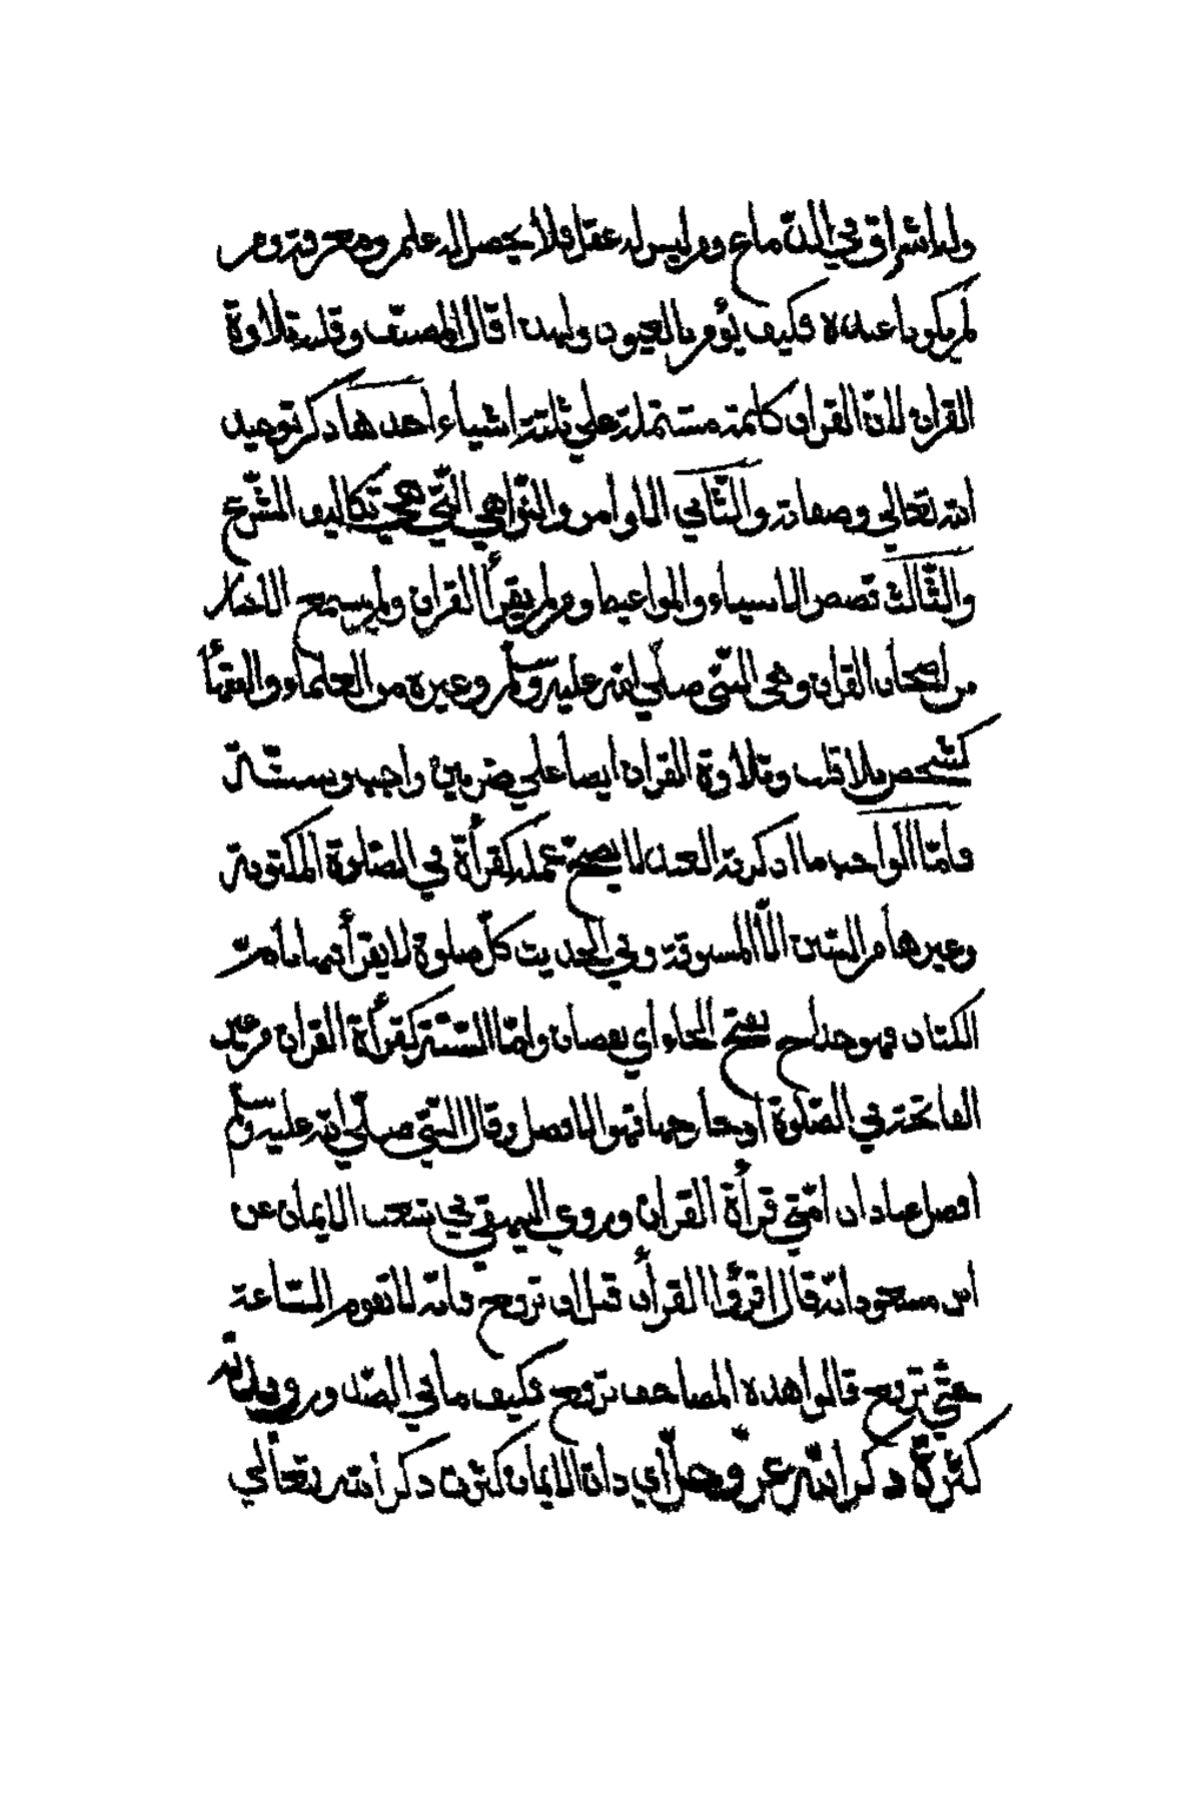 وله اشراق في الدماغ ومن ليس له عقل فلا يحصل له علم ومعرفة ومن
لم يكونا عنده فكيف يؤمن بالغيوب ولهذا قال المصنف وقلبه تلاوة
القران لان القران كلمة مشتملة علي ثلثة اشياء احدها ذكر توحيد
الله تعالي وصفاته والثّاني الاوامر والنّواهي الّتي هي تكاليف الشّرع
والثّالث قصص الانبياء والمواعيظ ومن لم يقرأ القران ولم يسمع الاخبار
من اصحاب القران وهي النّبّي صلّي الله عليه وسلّم وغيره من العلماء والفقهأ
كشخص بلا قلب وتلاوة القران ايضا علي ضربين واجب وسنّة
فامّا الواجب ما اذكرته العبد لا يصحّ عمله كقرأة في الصّلوة المكتوبة
وغيرها من السّنن الأ المسبوقة وفي الحديث كلّ صلوة لا يقرأ فيها بامّ
الكتاب فهو خداج بفتح الخاء اي نقصان وامّا السّنّة كقرأة القران من غير
الفاتحة في الصّلوة اوخارجها فهو الافضل وقال النّبّي صلّي الله عليه وسلّم
افضل عبادات امّتي قرأة القران وروي البيهقي في شعب الايمان عن
ابن مسعود انّه قال اقرؤا القرأن قبل ان ترفع فانّه لا تقوم السّاعة
حتّي ترفع قالوا هذه المصاحف ترفع فكيف ما في الصّدور وبدنه
كثرة ذكر الله عزّ وجلّ اي دات الايمان كثرت ذكر الله تعالي